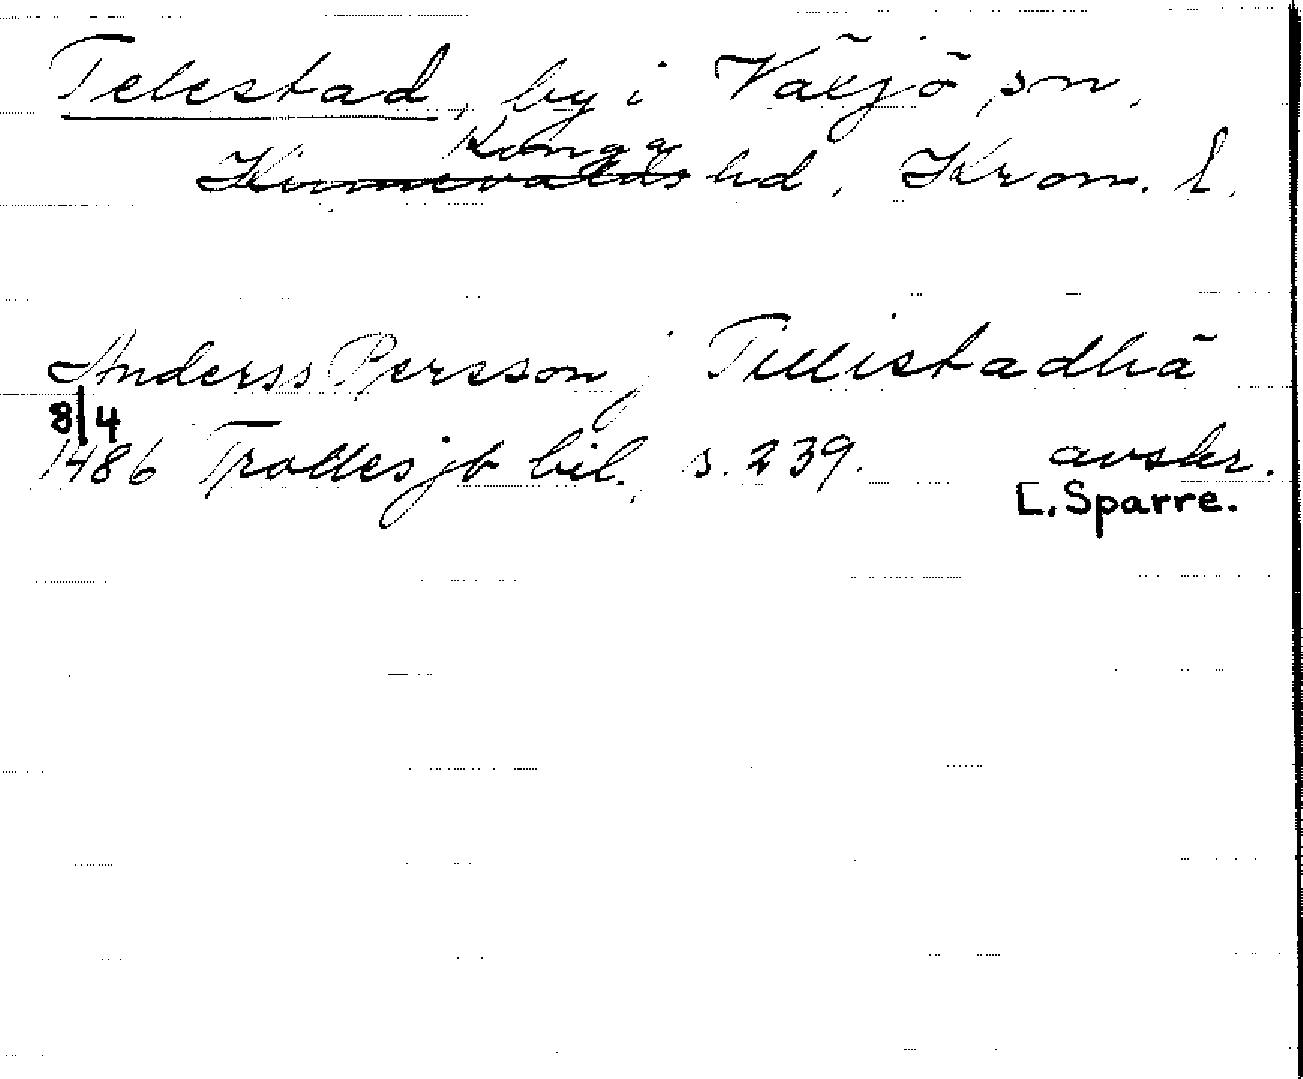 Telestad, by i Växjö sn,
Konga
Kinnevalds hd, Kron. l.
Anderss Persson j Tillistadhä
8/4
1486 Trolles jb bil. s. 239. avskr.
L. Sparre.